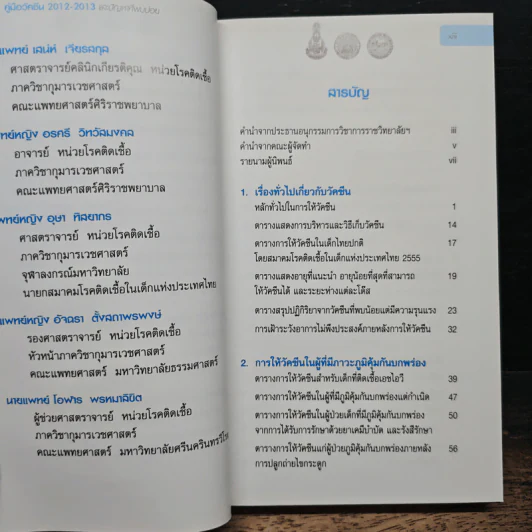 คู่มือวัคซีน 2012-2013 และปัญหาที่พบบ่อย
แพทย์ เสน่ห์ เจียสกุล
ศาสตราจารย์คลินิกเกียรติคุณ หน่วยโรคติดเชื้อ
ภาควิชากุมารเวชศาสตร์
คณะแพทยศาสตร์ศิริราชพยาบาล
อรศรี วิทวัสมงคล
อาจารย์ หน่วยโรคติดเชื้อ
ภาควิชากุมารเวชศาสตร์
คณะแพทยศาสตร์ศิริราชพยาบาล
อุษา ทิสยากร
ศาสตราจารย์ หน่วยโรคติดเชื้อ
ภาควิชากุมารเวชศาสตร์
จุฬาลงกรณ์มหาวิทยาลัย
นายกสมาคมโรคติดเชื้อในเด็กแห่งประเทศไทย
แพทย์หญิง อัจฉรา ตั้งสถาพรพงษ์
รองศาสตราจารย์ หน่วยโรคติดเชื้อ
หัวหน้าภาควิชากุมารเวชศาสตร์
คณะแพทยศาสตร์ มหาวิทยาลัยธรรมศาสตร์
นายแพทย์ โอฬาร พรหมาลิขิต
ผู้ช่วยศาสตราจารย์ หน่วยโรคติดเชื้อ
ภาควิชากุมารเวชศาสตร์
คณะแพทยศาสตร์ มหาวิทยาลัยศรีนครินทรวิโรฒ
สารบัญ
คำนำจากประธานอนุกรรมการวิชาการราชวิทยาลัยฯ iii
คำนำจากคณะผู้จัดทำ v
รายนามผู้นิพนธ์ vii
1. เรื่องทั่วไปเกี่ยวกับวัคซีน
หลักทั่วไปในการให้วัคซีน 1
ตารางแสดงการบริหารและวิธีเก็บวัคซีน 14
ตารางการให้วัคซีนในเด็กไทยปกติ 17
โดยสมาคมโรคติดเชื้อในเด็กแห่งประเทศไทย 2555
ตารางแสดงอายุที่แนะนำ อายุน้อยที่สุดที่สามารถ 19
ให้วัคซีนได้ และระยะห่างแต่ละโด๊ส
ตารางสรุปปฏิกิริยาจากวัคซีนที่พบน้อยแต่มีความรุนแรง 23
การเฝ้าระวังอาการไม่พึงประสงค์ภายหลังการให้วัคซีน 32
2. การให้วัคซีนในผู้ที่มีภาวะภูมิคุ้มกันบกพร่อง
ตารางการให้วัคซีนสำหรับเด็กที่ติดเชื้อเอชไอวี 39
ตารางการให้วัคซีนในผู้ที่มีภูมิคุ้มกันบกพร่องแต่กำเนิด 47
ตารางการให้วัคซีนในผู้ป่วยเด็กที่มีภูมิคุ้มกันบกพร่อง 50
จากการได้รับการรักษาด้วยยาเคมีบำบัด และรังสีรักษา
ตารางการให้วัคซีนแก่ผู้ป่วยภูมิคุ้มกันบกพร่องภายหลัง 56
การปลูกถ่ายไขกระดูก